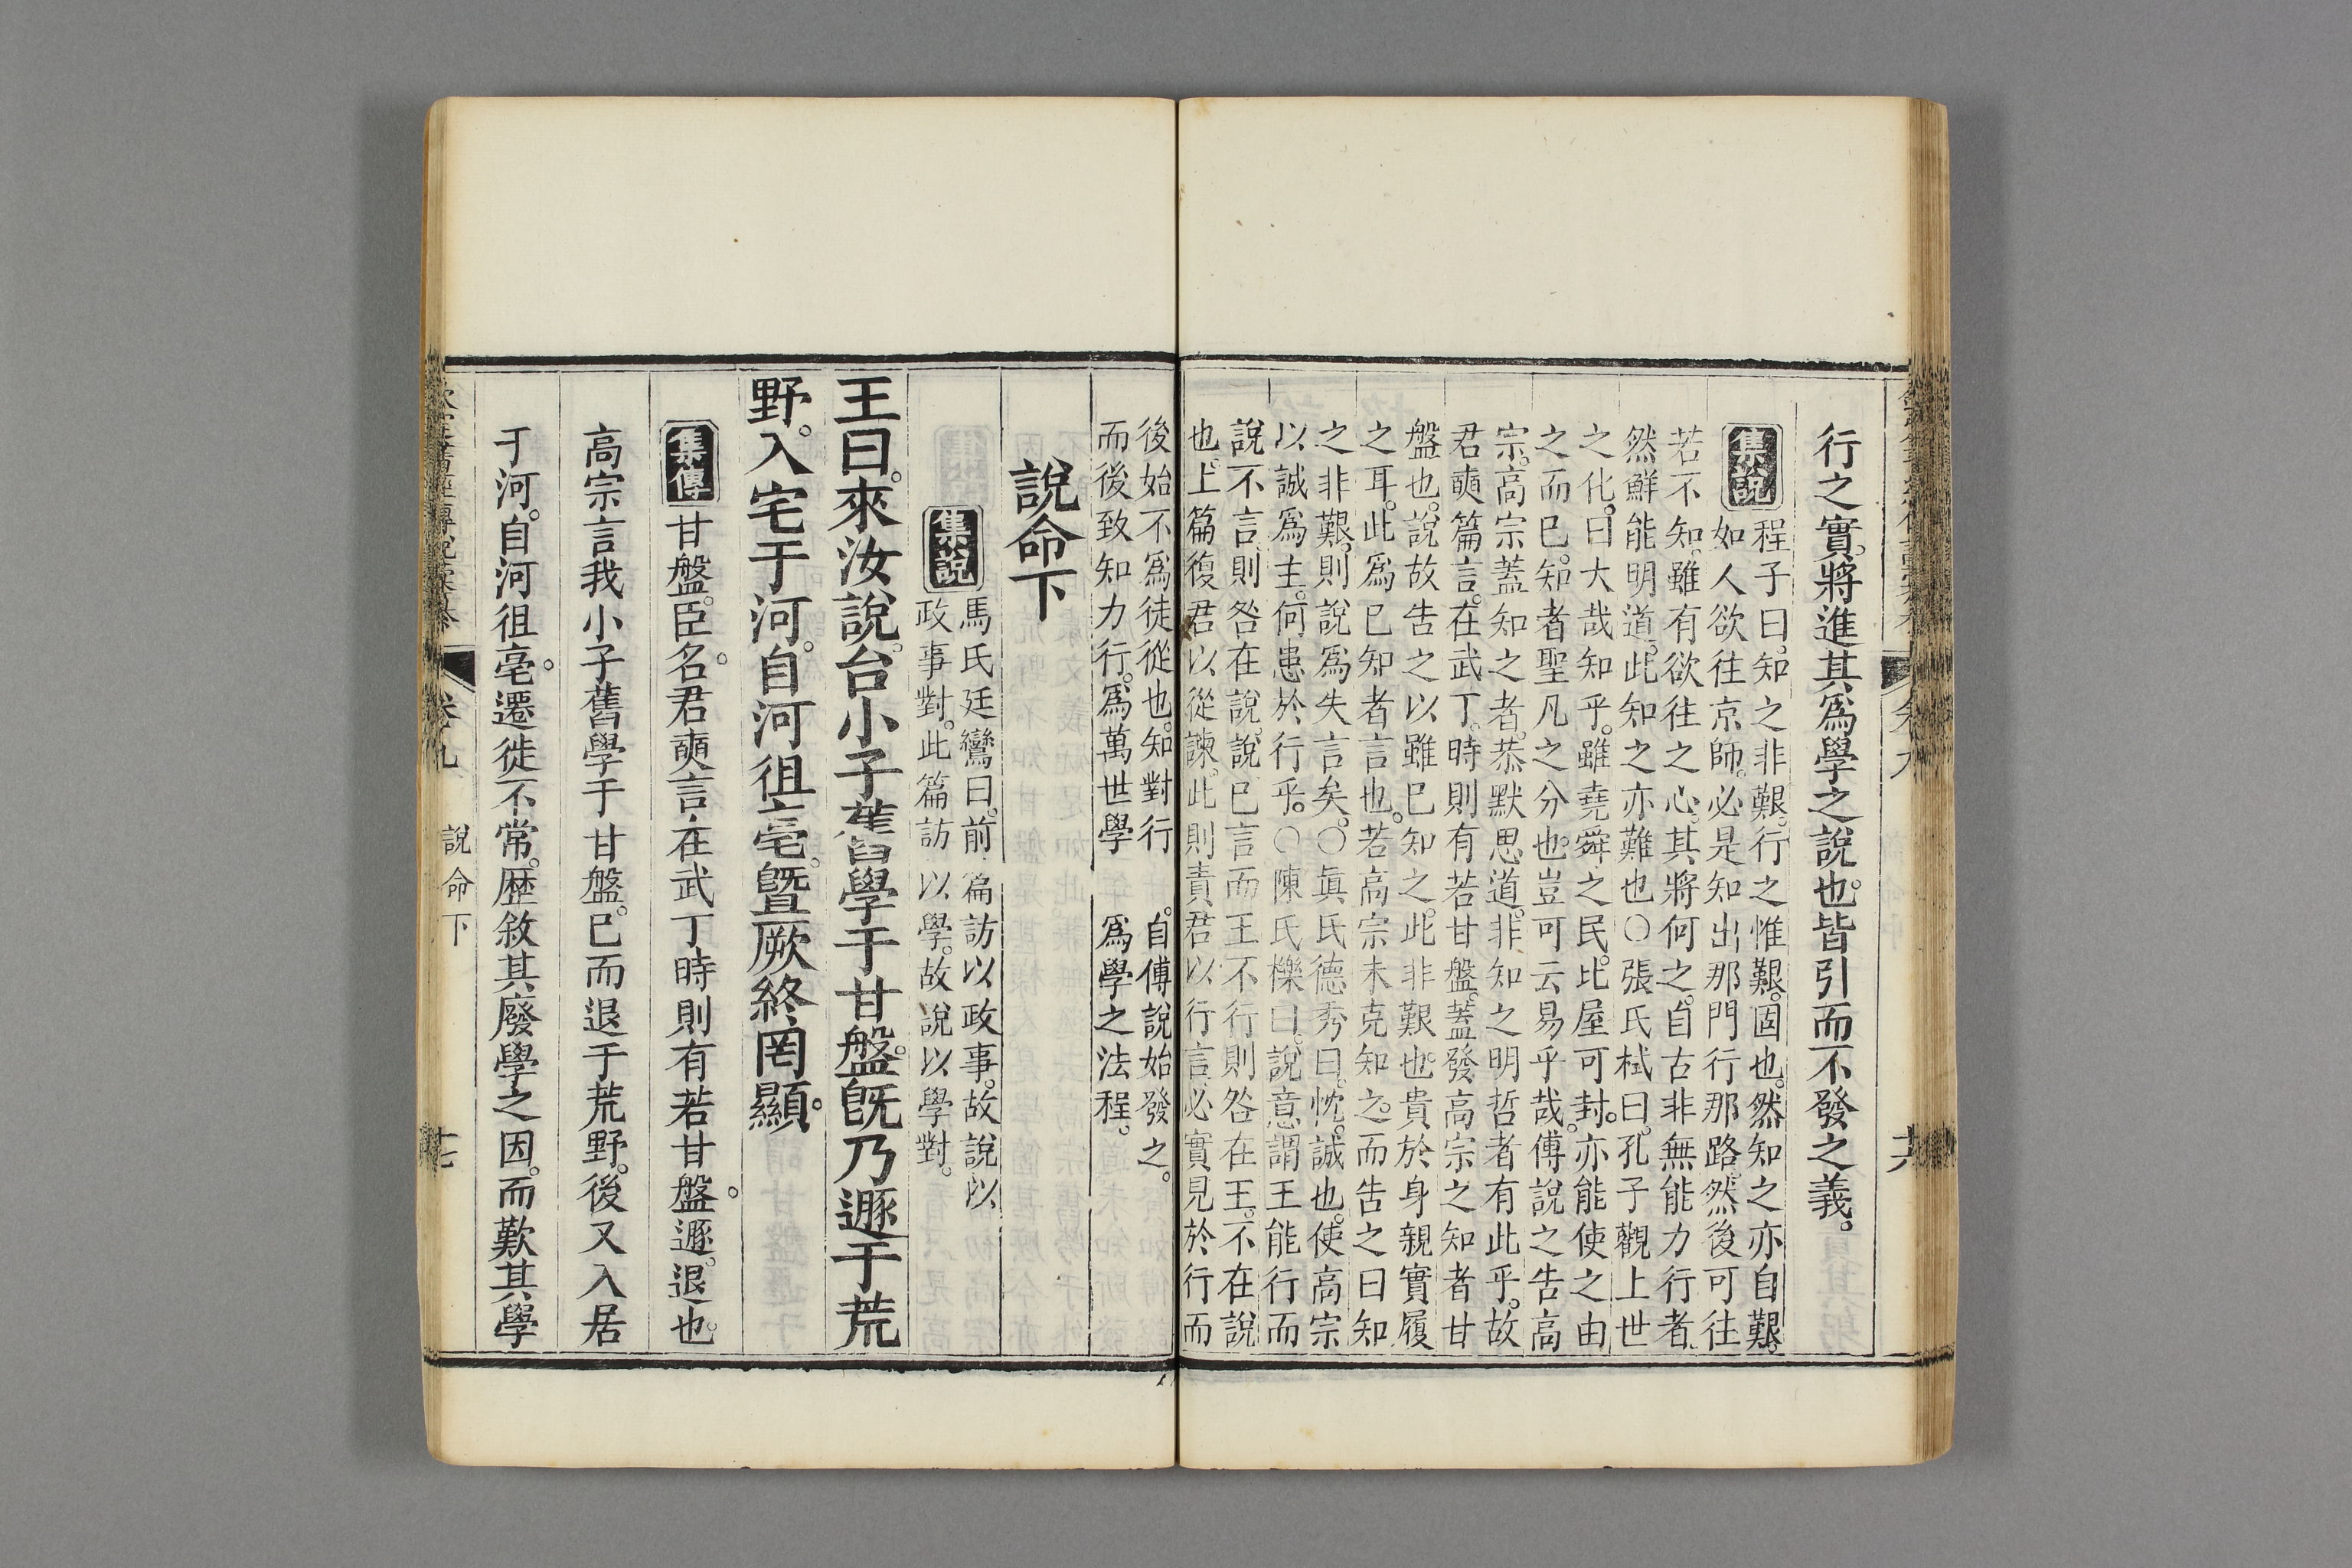 行之實。將進其爲學之說也。皆引而不發之義。
集說
程子曰。知之非艱。行之惟艱。固也。然知之亦自艱。
如人欲往京師。必是知出那門行那路。然後可往
若不知。雖有欲往之心。其將何之。自古非無能力行者。
然鮮能明道。此知之亦難也○張氏栻曰。孔子觀上世
之化。曰大哉知乎。雖堯舜之民。比屋可封。亦能使之由
之而已。知者聖凡之分也。豈可云易乎哉。傅說之告高
宗。高宗蓋知之者。恭默思道。非知之明哲者有此乎。故
君奭篇言。在武丁。時則有若甘盤。蓋發高宗之知者甘
盤也。說故告之以雖已知之。此非艱也。貴於身親實履
之耳。此爲已知者言也。若高宗未克知之。而告之曰知
之非艱。則說爲失言矣。○眞氏德秀曰。忱。誠也。使高宗
以誠爲主。何患於行乎。○陳氏櫟曰。說意謂王能行而
說不言。則咎在說。說已言而王不行則咎在王。不在說
也。上篇復君以從諫。此則責君以行言。必實見於行而
後始不爲徒從也。知對行。自傅說始發之。
而後致知力行。爲萬世學爲學之法程。
說命下
集說
馬氏廷鸞曰。前篇訪以政事。故說以
政事對。此篇訪以學。故說以學對。
王曰。來汝說。台小子舊學于甘盤。旣乃遯于荒
野。入宅于河。自河徂亳。曁厥終罔顯。
集傳
甘盤。臣名。君奭言。在武丁時則有若甘盤。遯。退也。
高宗言我小子舊學于甘盤。已而退于荒野。後又入居
于河。自河徂亳。遷徙不常。歷敘其廢學之因。而歎其學
卷九
說命下
十七